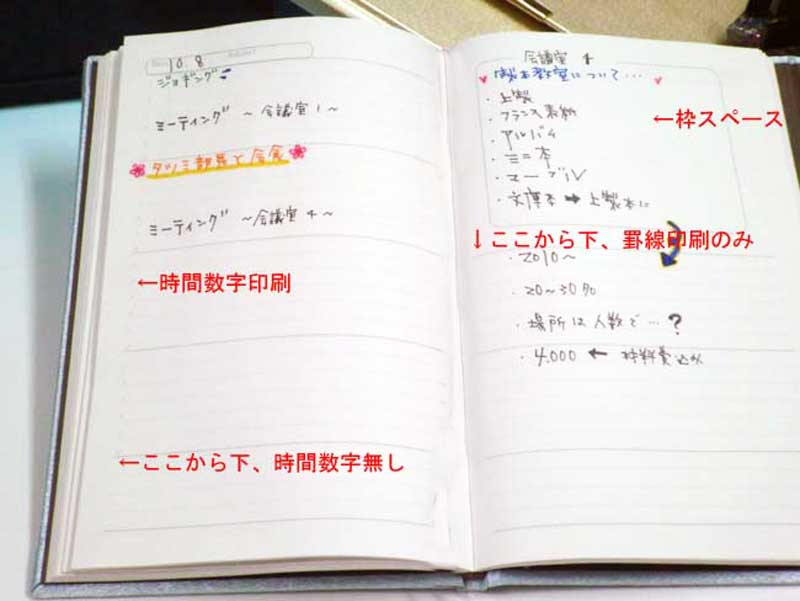 10. 8
ジョギング
ミーティング ～会議室 1～
タツミ部長と会食
ミーティング ～会議室 4～
←時間数字印刷
←ここから下、時間数字無し
会議室 4
製本教室について...
・上製
・フランス表紙
・アルバム
・ミニ本
・マーブル
・文庫本 ➡ 上製本に
←枠スペース
↓ここから下、罫線印刷のみ
・2010～
・20～30名
・場所は人数で…?
・4,000 ← 材料費込み